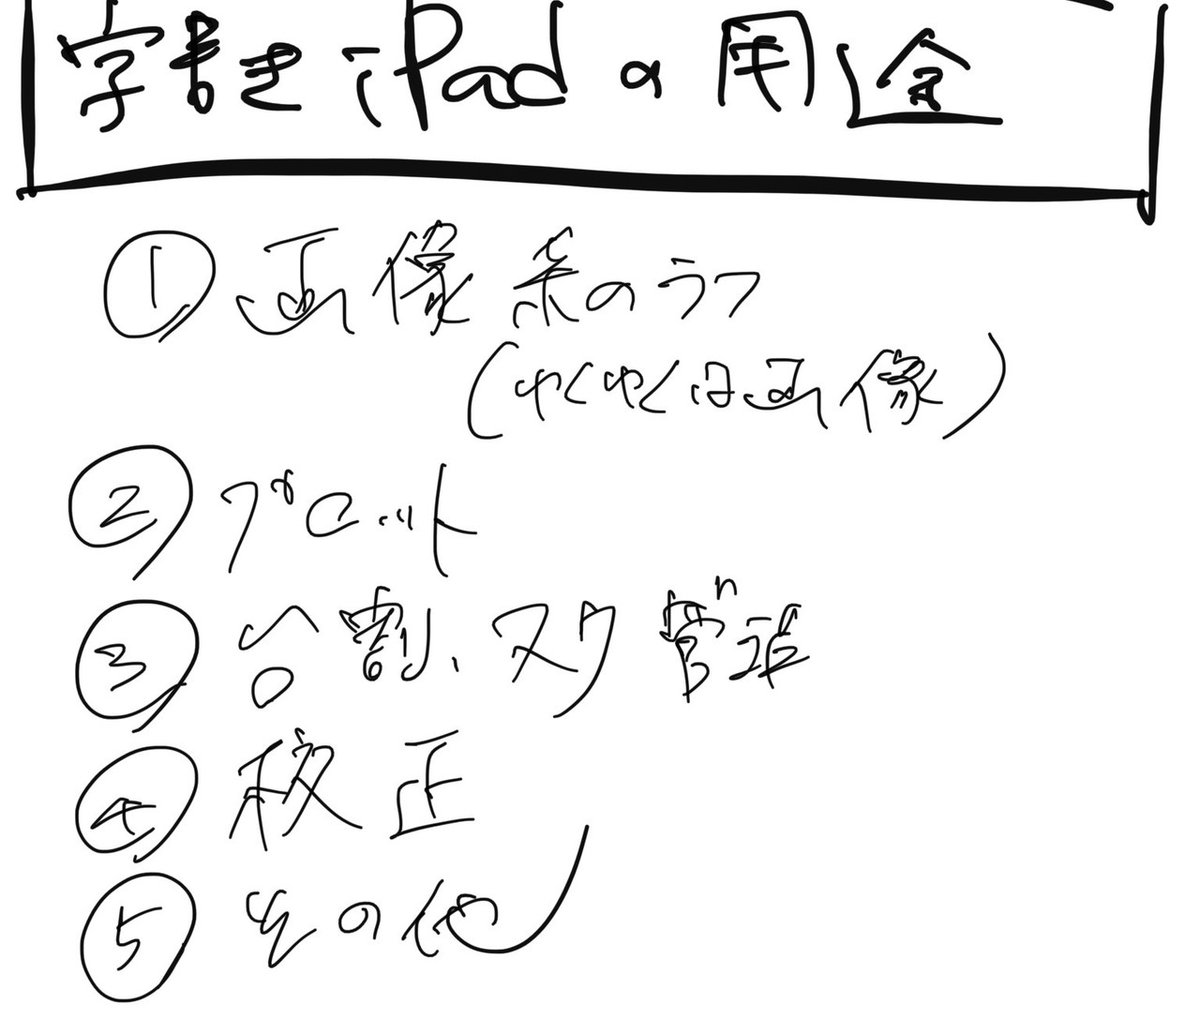 字書き iPad の用途
① 画像系のラフ
(ゆくゆくは画像)
② プロット
③ 台割、スケ管理
④ 校正
⑤ その他